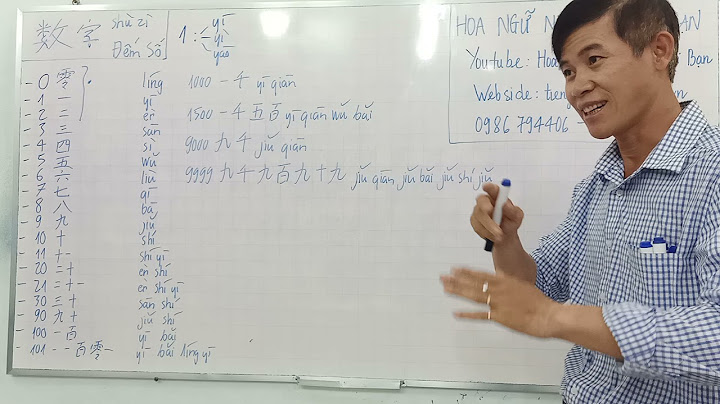 数字 shù zì
Đếm Số
1: yī
yí
yāo
HOA NGỮ
AN
Youtube: Hoa Bạn
Webside: tieng
0986 794406
- 0 零 líng
- 1 一 yī
- 2 二 èr
- 3 三 sān
- 4 四 sì
- 5 五 wǔ
- 6 六 liù
- 7 七 qī
- 8 八 bā
- 9 九 jiǔ
- 10 十 shí
- 11 十一 shí yī
- 20 二十 èr shí
- 21 二十一 èr shí yī
- 30 三十 sān shí
- 90 九十 jiǔ shí
- 100 一百 yī bǎi
- 101 - 一百零一 yī bǎi líng yī
1000 一千 yī qiān
1500 一千五百 yī qiān wǔ bǎi
9000 九千 jiǔ qiān
9999 九千九百九十九 jiǔ qiān jiǔ bǎi jiǔ shí jiǔ